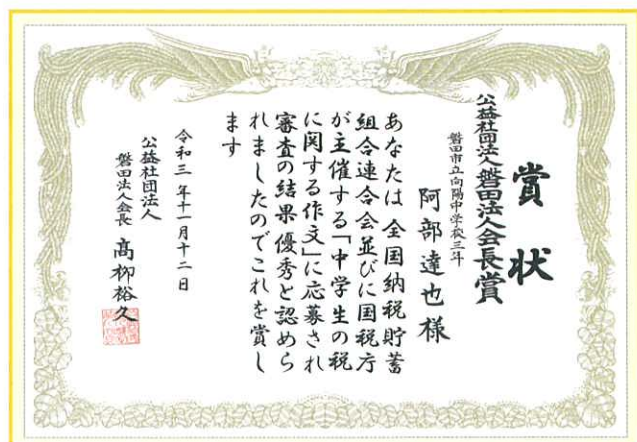 賞状
公益社団法人磐田法人会長賞
磐田市立向陽中学校三年
阿部達也様
あなたは全国納税貯蓄
組合連合会並びに国税庁
が主催する「中学生の税
に関する作文」に応募され
審査の結果優秀と認めら
れましたのでこれを賞し
ます
令和三年十一月十二日
公益社団法人
磐田法人会長 髙柳裕久